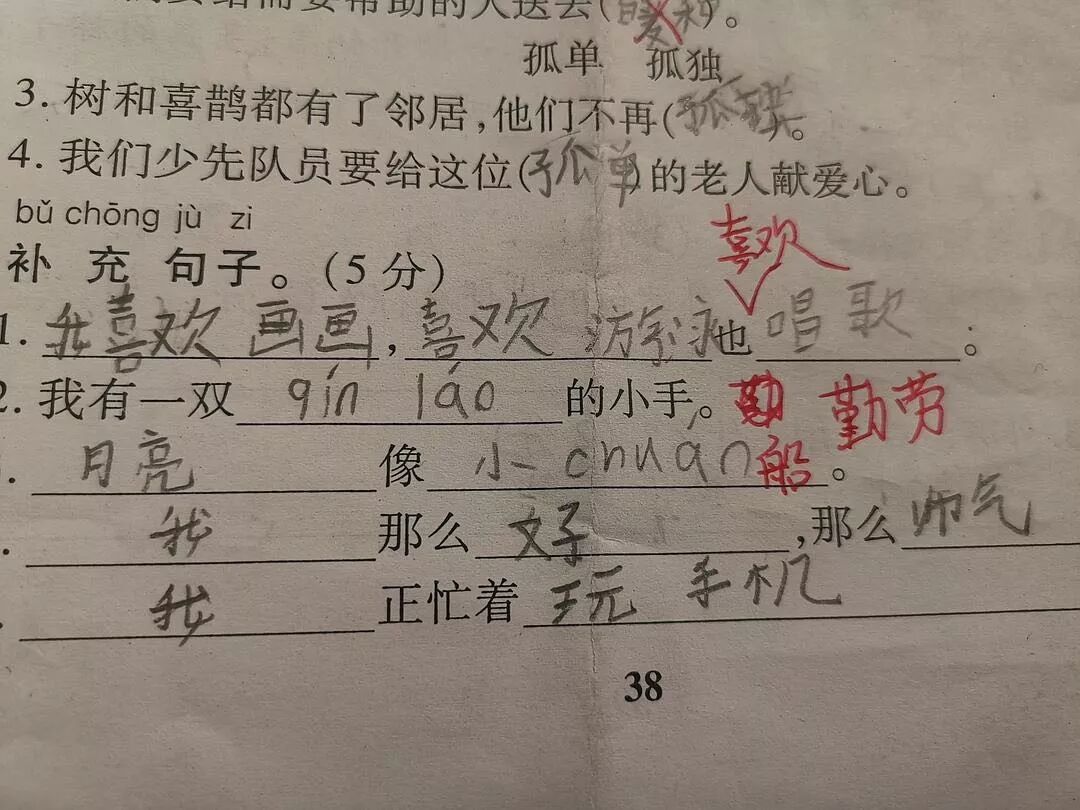 需要帮助的人送去(
孤单 孤独
3. 树和喜鹊都有了邻居,他们不再(孤独)。
4. 我们少先队员要给这位(孤单)的老人献爱心。
bǔ chōng jù zi
补充句子。(5分)
喜欢
1. 我喜欢画画,喜欢游泳也唱歌。
2. 我有一双qín láo的小手。勤 勤劳
. 月亮像小chuán船。
. 我那么好,那么帅气
. 我正忙着玩手机
38